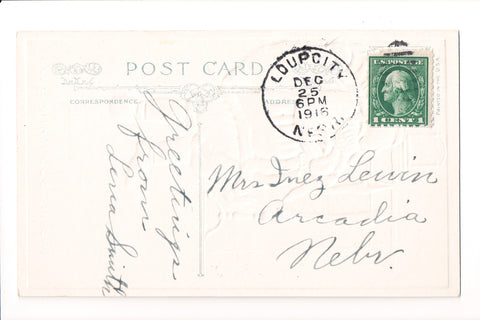 POST CARD
CORRESPONDENCE
ADDRESS
LOUP CITY
DEC
25
6PM
1916
NEBR.
U.S. POSTAGE
1 CENT 1
Greetings
from
Lena Smith
Mrs Inez Lewin
Arcadia
Nebr.